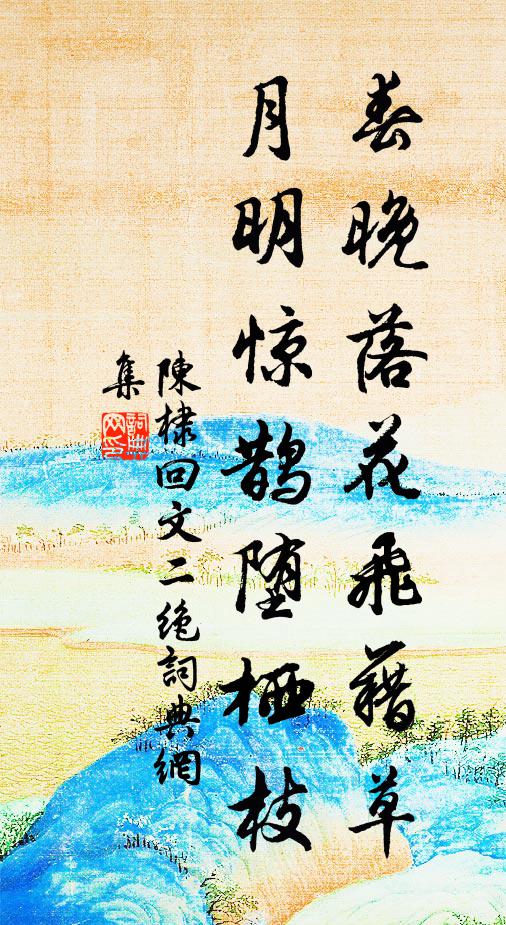 春晚落花飛藉草
月明惊鵲堕栖枝
陳棣回文二絶詞典網
集
詞典